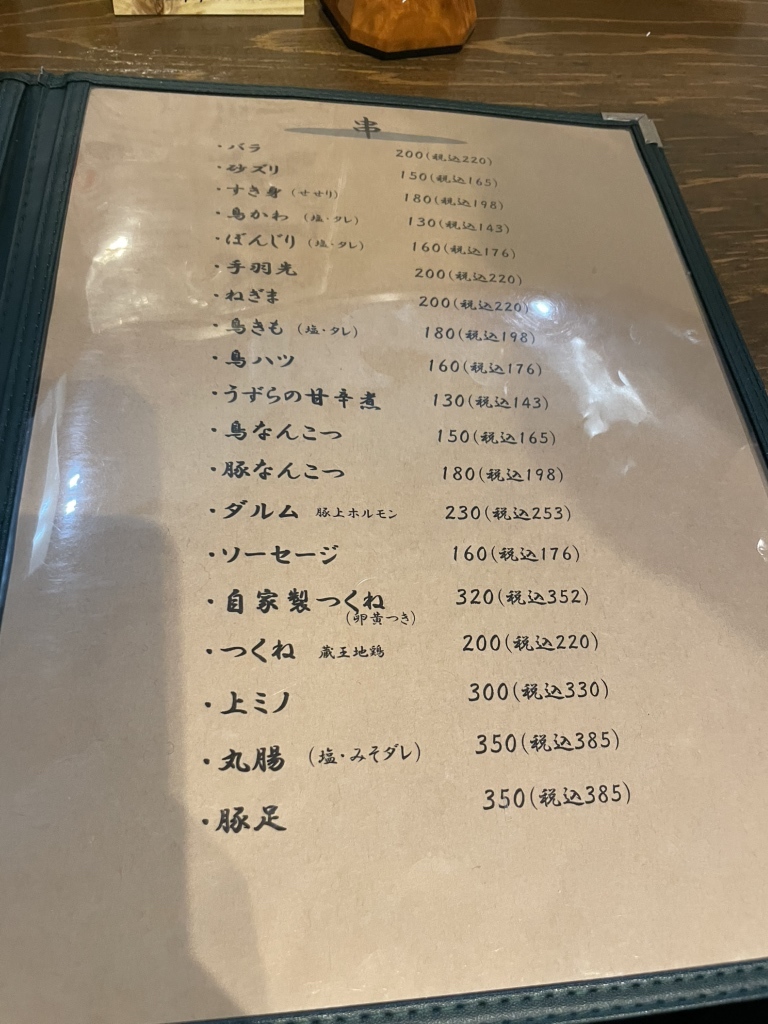 串
・バラ 200(税込220)
・砂ズリ 150(税込165)
・すき身 (せせり) 180(税込198)
・鳥かわ (塩・タレ) 130(税込143)
・ぼんじり (塩・タレ) 160(税込176)
・手羽先 200(税込220)
・ねぎま 200(税込220)
・鳥きも (塩・タレ) 180(税込198)
・鳥ハツ 160(税込176)
・うずらの甘辛煮 130(税込143)
・鳥なんこつ 150(税込165)
・豚なんこつ 180(税込198)
・ダルム 豚上ホルモン 230(税込253)
・ソーセージ 160(税込176)
・自家製つくね 320(税込352)
(卵黄つき)
・つくね 蔵王地鶏 200(税込220)
・上ミノ 300(税込330)
・丸腸 (塩・みそダレ) 350(税込385)
・豚足 350(税込385)